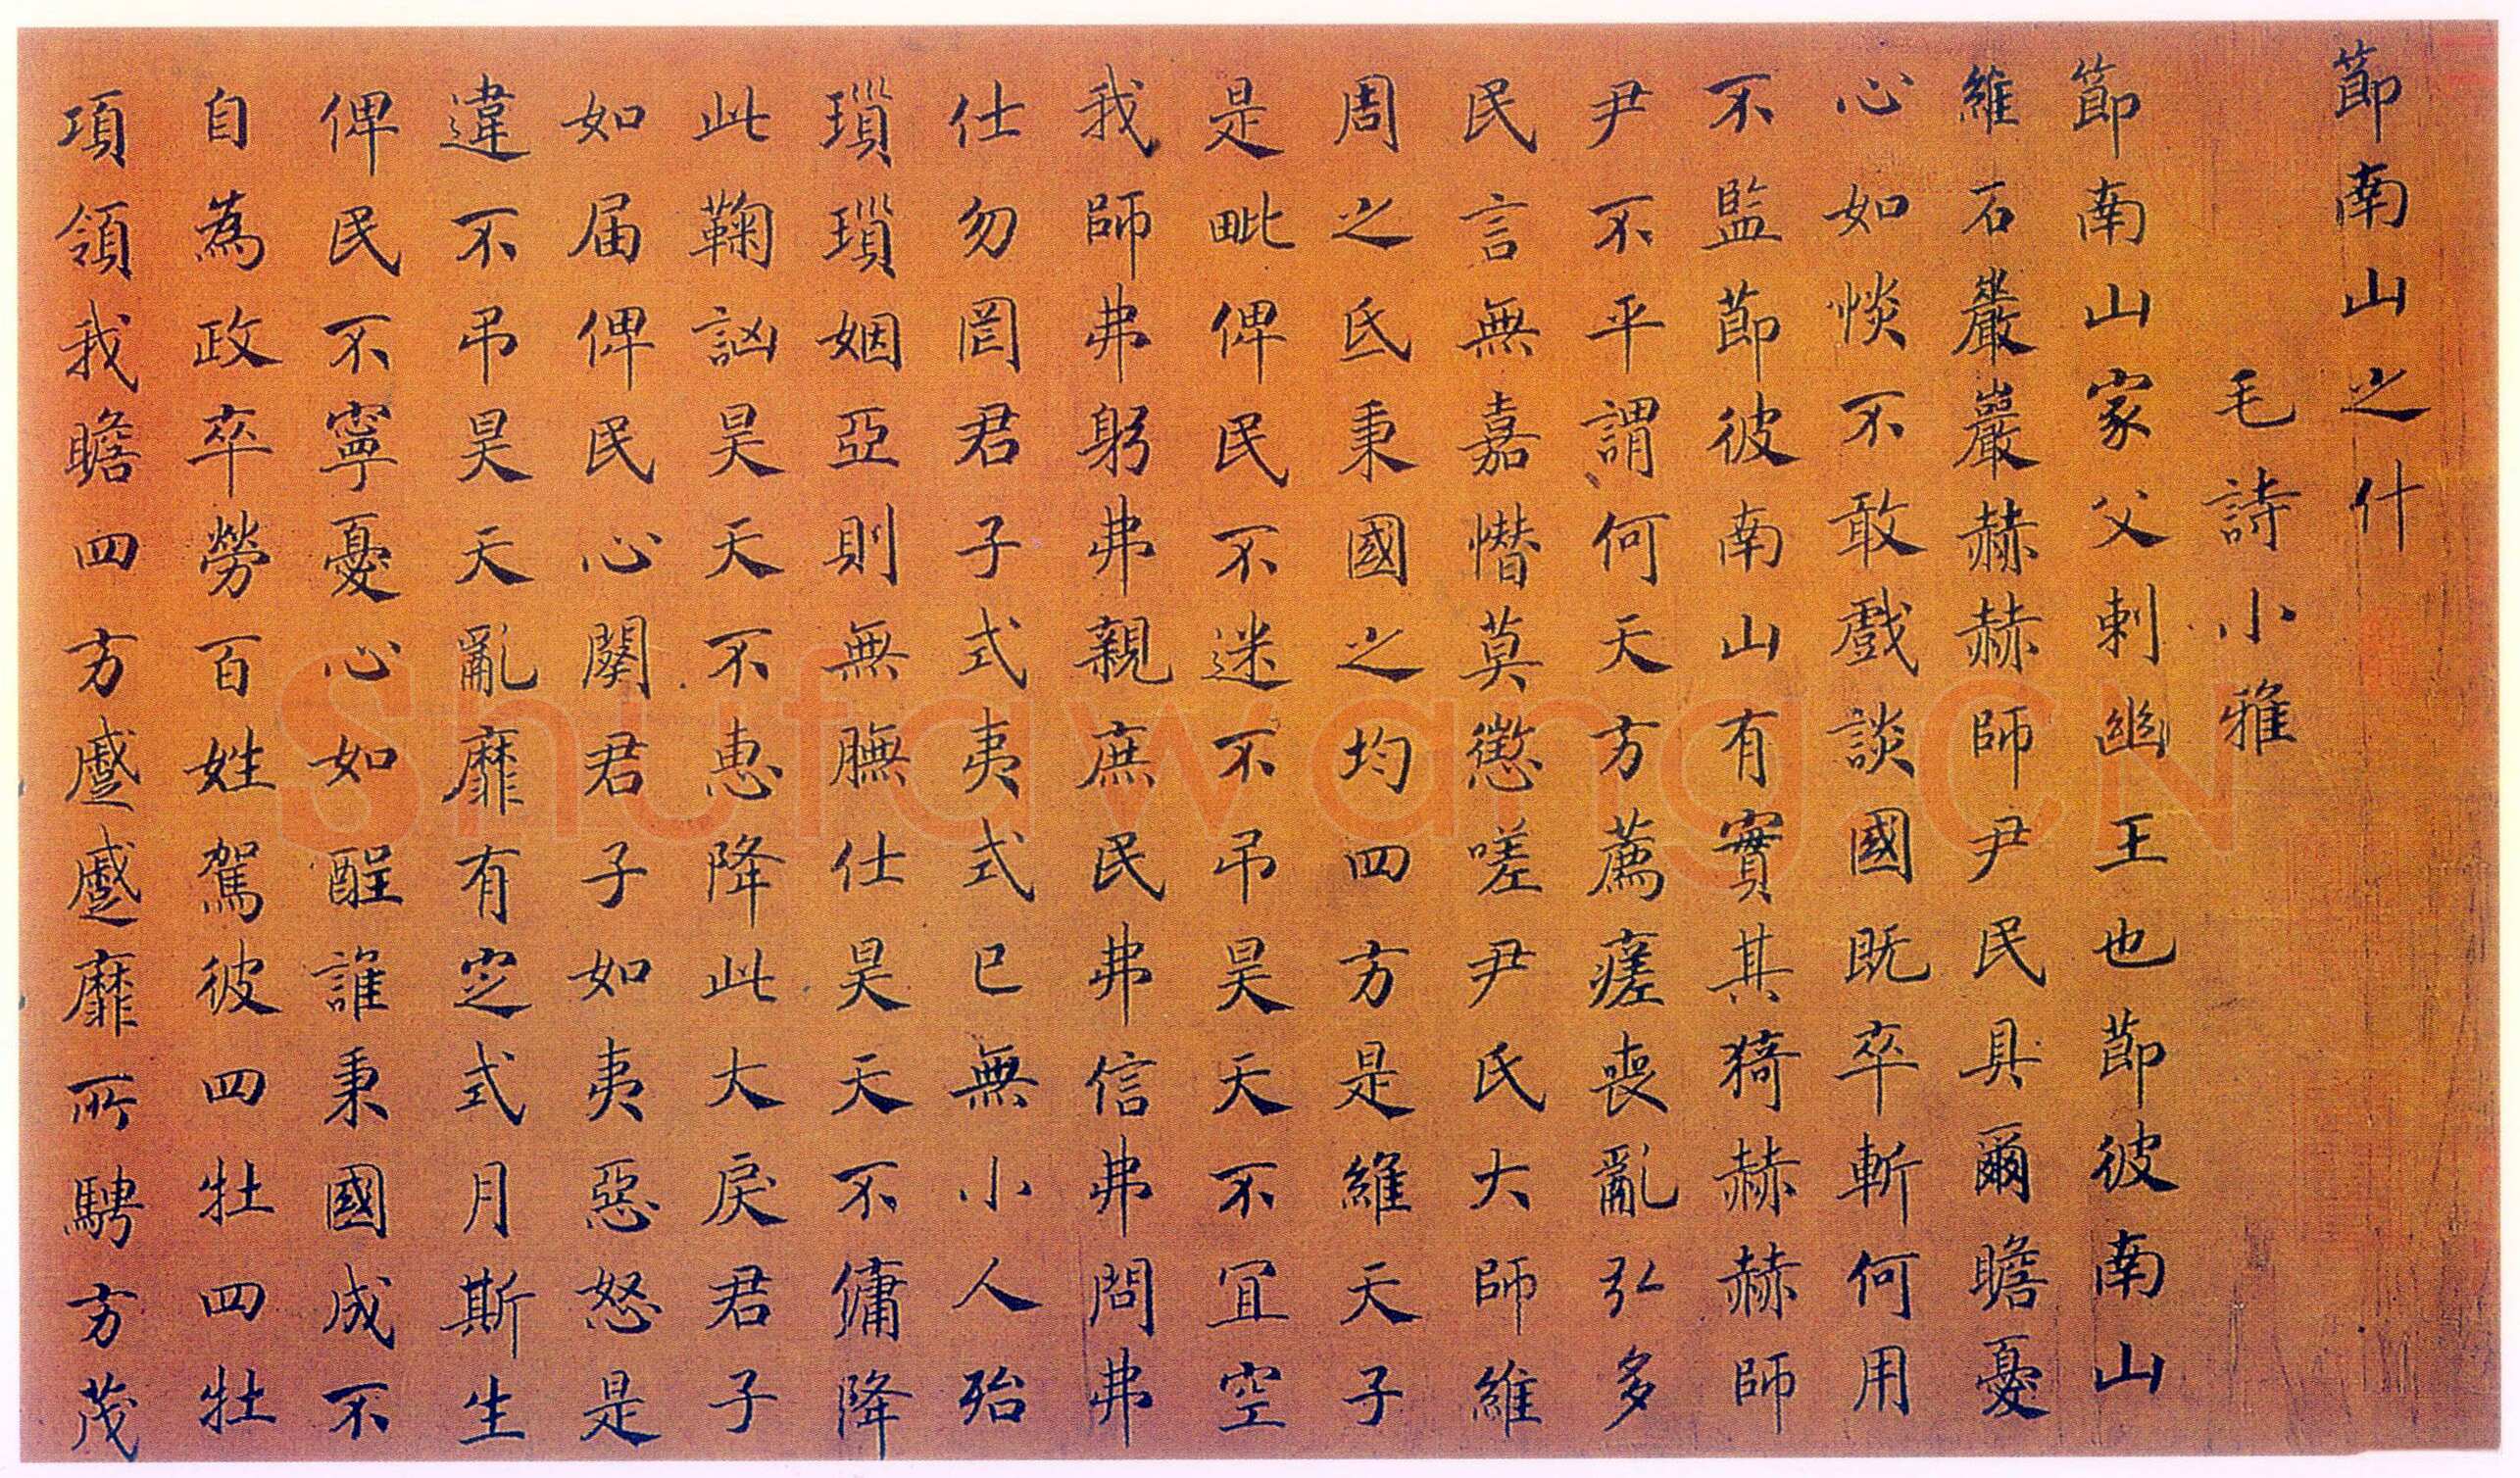 節南山之什
毛詩小雅
節南山家父刺幽王也節彼南山
維石巖巖赫赫師尹民具爾瞻憂
心如惔不敢戲談國既卒斬何用
不監節彼南山有實其猗赫赫師
尹不平謂何天方薦瘥喪亂弘多
民言無嘉憯莫懲嗟尹氏大師維
周之氐秉國之均四方是維天子
是毗俾民不迷不吊昊天不宜空
我師弗躬弗親庶民弗信弗問弗
仕勿罔君子式夷式已無小人殆
瑣瑣姻亞則無膴仕昊天不傭降
此鞠訩昊天不惠降此大戾君子
如届俾民心闋君子如夷惡怒是
違不吊昊天亂靡有定式月斯生
俾民不寧憂心如酲誰秉國成不
自為政卒勞百姓駕彼四牡四牡
項領我瞻四方蹙蹙靡所騁方茂
Shufawang.CN